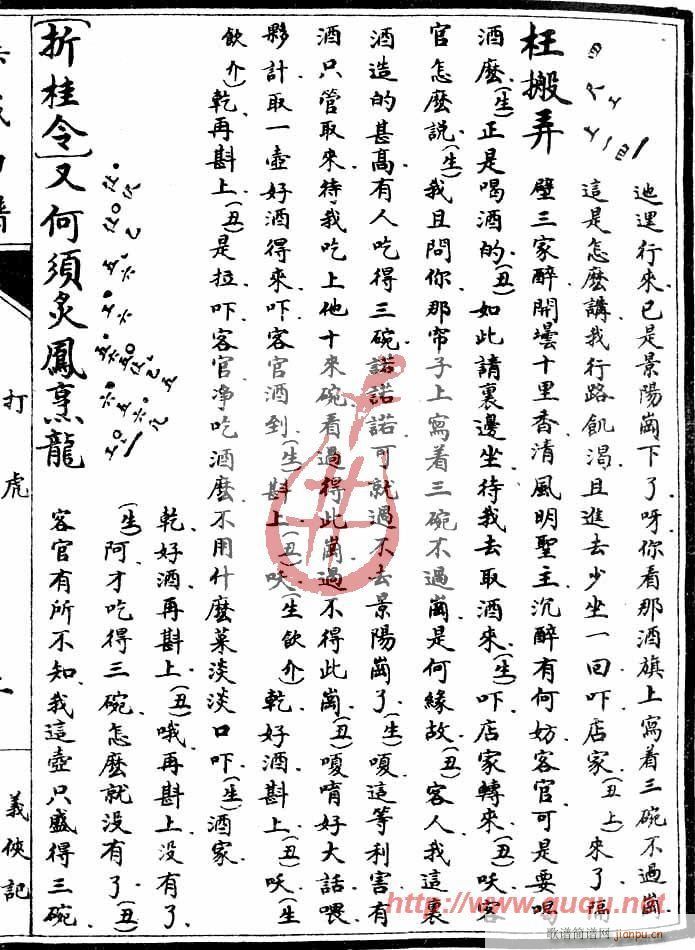 枉搬弄
迆逞行來已是景陽崗下了呀你看那酒旗上寫着三碗不過崗
這是怎麽講我行路飢渴且進去少坐一回吓店家(丑上)來了隔
壁三家醉開壜十里香清風明聖主沉醉有何妨客官可是要喝
酒麽(生)正是喝酒的(丑)如此請裏邊坐待我去取酒來(生)吓店家轉來(丑)㕭客
官怎麽説(生)我且問你那帘子上寫着三碗不過崗是何緣故(丑)客人我這裏
酒造的甚高有人吃得三碗諾諾諾可就過不去景陽崗了(生)嗄這等利害有
酒只管取來待我吃上他十來碗看過得此崗過不得此崗(丑)嗄唷好大話喂
夥計取一壺好酒得來吓客官酒到(生)斟上(丑)㕭(生飲介)乾好酒斟上(丑)㕭(生
飲介)乾再斟上(丑)是拉吓客官净吃酒麽不用什麽菜淡淡口吓(生)酒家
[折桂令]又何須炙鳳烹龍
乾好酒再斟上(丑)哦再斟上没有了
(生)阿才吃得三碗怎麽就没有了(丑)
客官有所不知我這壺只盛得三碗
打虎
義俠記
http://www.guqu.net
歌谱简谱网
jianpu.cn